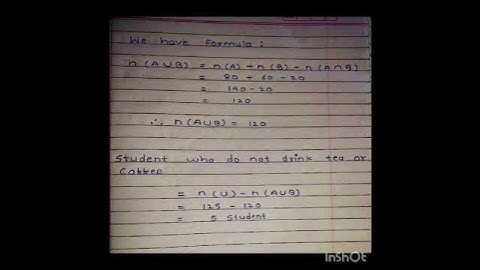 We have Formula :
n (AUB) = n(A) + n(B) - n(A∩B)
= 80 + 60 - 20
= 140 - 20
= 120
∴ n(AUB) = 120
Student who do not drink tea or
Coffee
= n(U) - n(AUB)
= 125 - 120
= 5 Student
InShOt